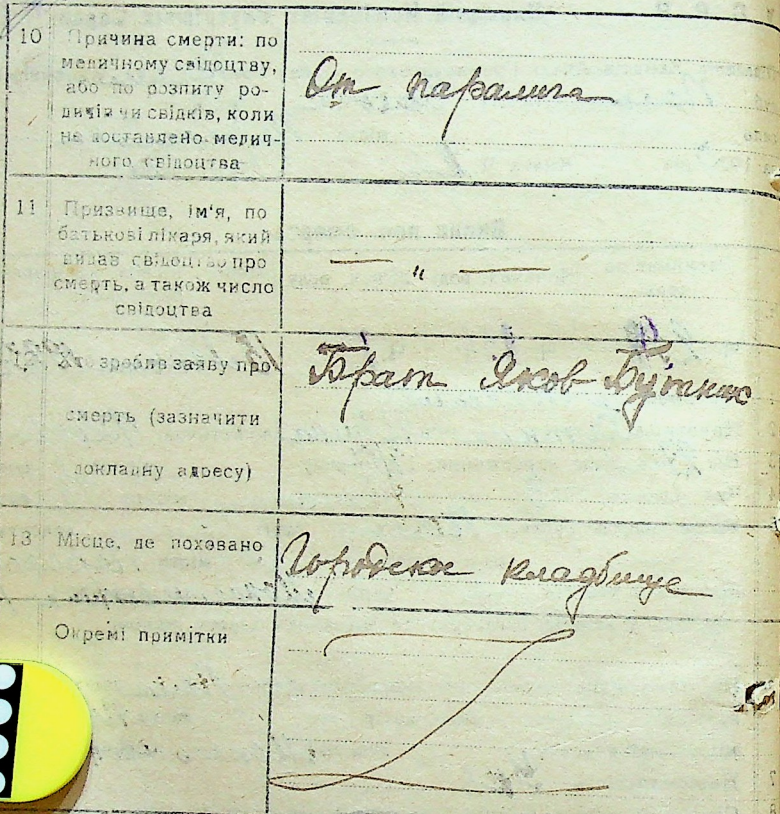 10 Причина смерти: по
медичному свідоцтву,
або по розпиту ро-
дичів чи свідків, коли
не доставлено медич-
ного свідоцтва
От паралича
11 Призвище, ім'я, по
батькові лікаря, який
видав свідоцтво про
смерть, а також число
свідоцтва
— „ —
12 Хт зробив заяву про
смерть (зазначити
докладну адресу)
Брат Яков
13 Місце, де поховано
Городское кладбище
Окремі примітки